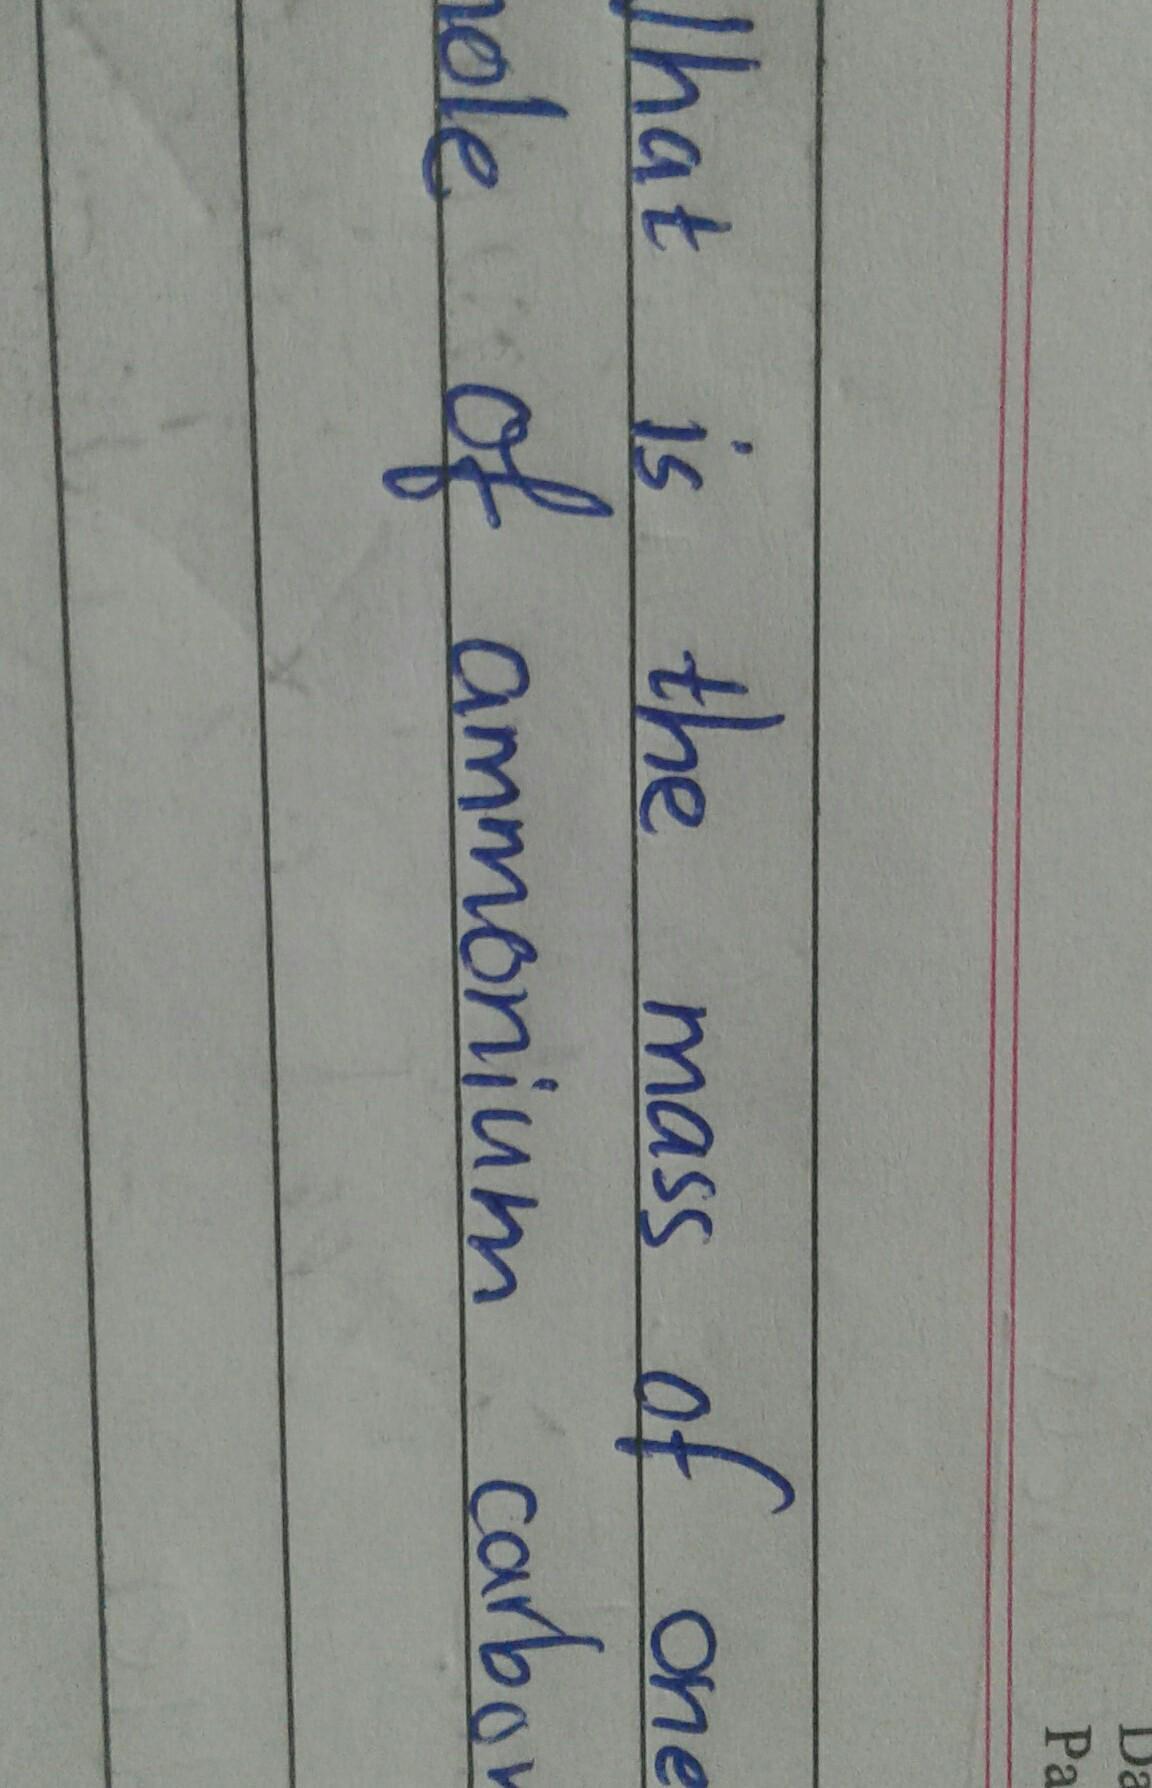 What is the mass of one
mole of ammonium carbon
Da
Pa